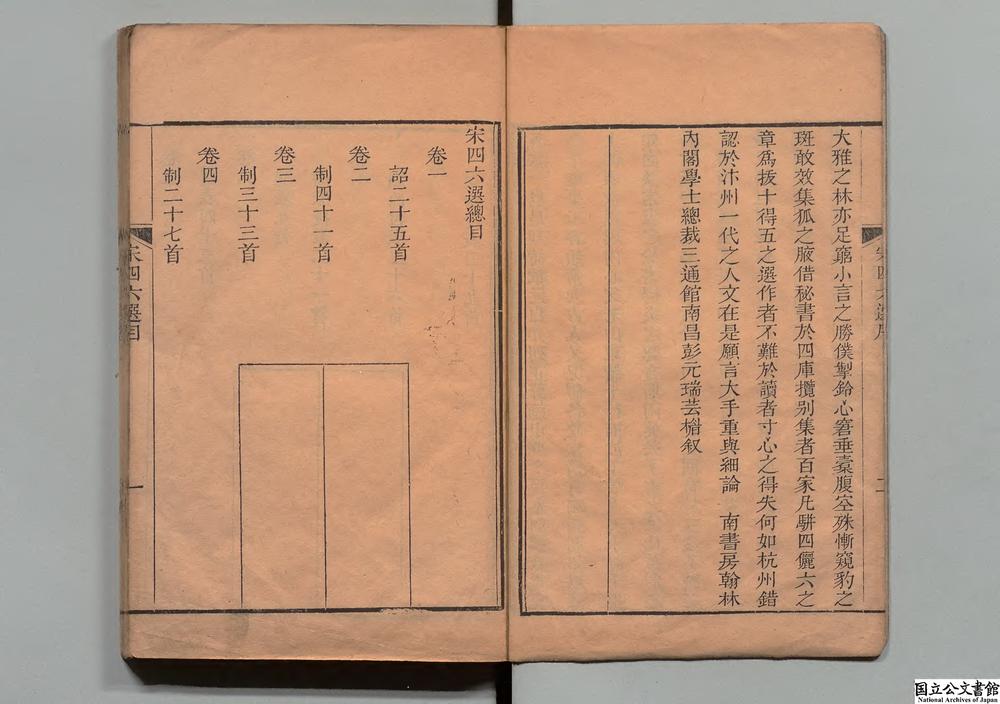 大雅之林亦足窮小言之勝僕掣鈴心窘垂橐腹空殊慚窺豹之
斑敢效集狐之腋借秘書於四庫攬别集者百家凡駢四儷六之
章爲拔十得五之選作者不難於讀者寸心之得失何如杭州錯
認於汴州一代之人文在是願言大手重與細論 南書房翰林
內閣學士總裁三通館南昌彭元瑞芸楣叙
宋四六選序
二
宋四六選總目
卷一
詔二十五首
卷二
制四十一首
卷三
制三十三首
卷四
制二十七首
宋四六選目
一
国立公文書館
National Archives of Japan